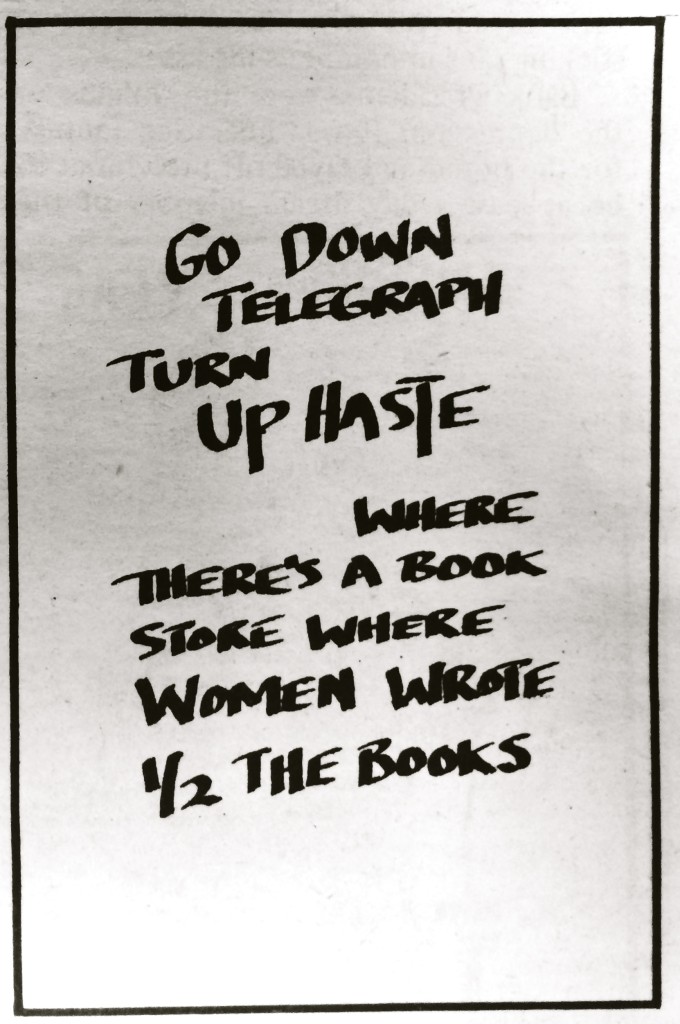 GO DOWN
TELEGRAPH
TURN
UP HASTE
WHERE
THERE'S A BOOK
STORE WHERE
WOMEN WROTE
1/2 THE BOOKS